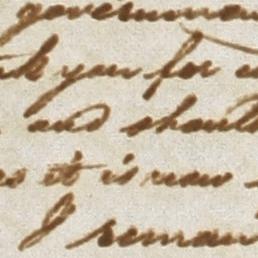 governmen
nk you for
and should
as it is now
I remain